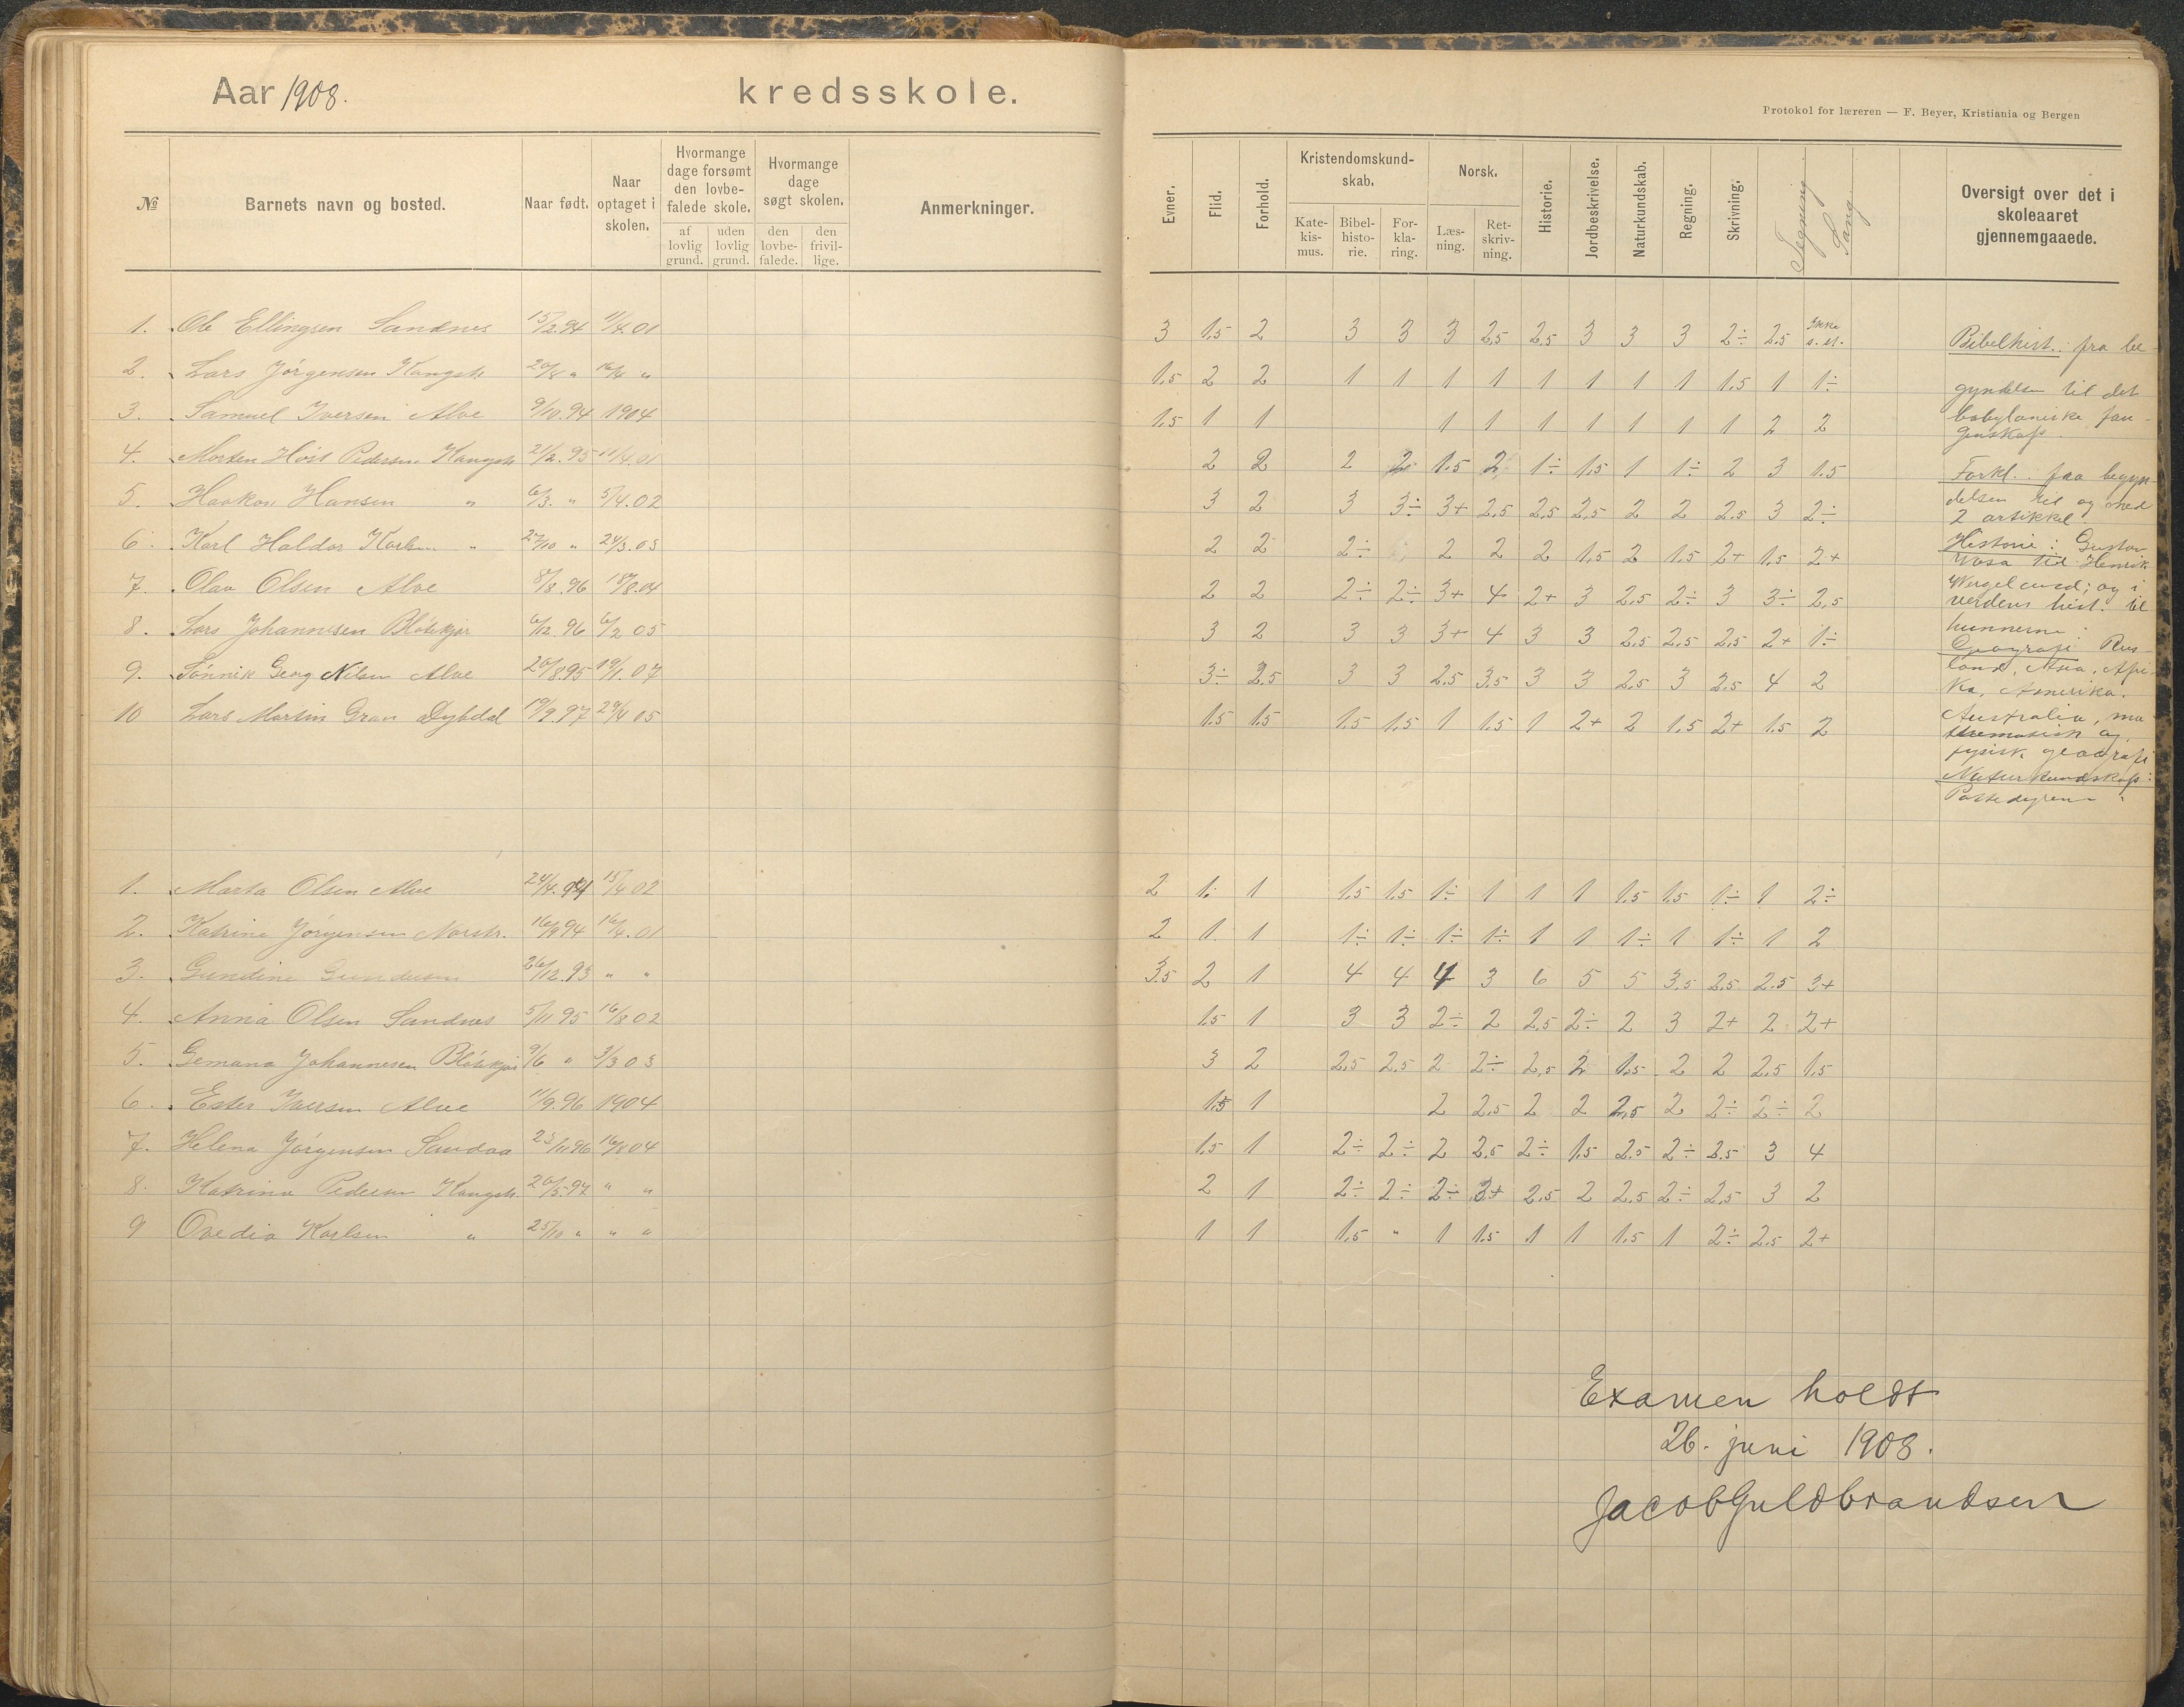 Aar 1908.
kredsskole.
Protokol for læreren — F. Beyer, Kristiania og Bergen
№ Barnets navn og bosted. Naar født. Naar optaget i skolen. Hvormange dage forsømt den lovbefalede skole. af lovlig grund. uden lovlig grund. Hvormange dage søgt skolen. den lovbefalede. den frivillige. Anmerkninger.
Evner. Flid. Forhold. Kristendomskundskab. Katekismus. Bibelhistorie. Forklaring. Norsk. Læsning. Retskrivning. Historie. Jordbeskrivelse. Naturkundskab. Regning. Skrivning. Tegning Sang. Oversigt over det i skoleaaret gjennemgaaede.
1. Ole Ellingsen Sandnes 15/2.94 11/4.01 3 1.5 2 3 3 3 2.5 2.5 3 3 3 2÷ 2.5 Ikke
2. Lars Jørgensen 20/8 " 16/4 " 1.5 2 2 1 1 1 1 1 1 1 1 1.5 1 1÷
3. Samuel Iversen Alve 9/10.94 1904 1.5 1 1 1 1 1 1 1 1 1 2 2
4. Morten Høst Pedersen 21/2.95 11/4.01 2 2 2 2 1.5 2 1÷ 1.5 1 1÷ 2 3 1.5
5. Haakon Hansen " 6/3. " 5/4.02 3 2 3 3÷ 3+ 2.5 2.5 2.5 2 2 2.5 3 2÷
6. Karl Haldor Karlsen " 27/10 " 24/3.03 2 2 2÷ 2 2 2 1.5 2 1.5 2+ 1.5 2+
7. Olav Olsen Alve 8/8.96 18/8.04 2 2 2÷ 2÷ 3+ 4 2+ 3 2.5 2÷ 3 3÷ 2.5
8. Lars Johannesen Bløtekjær 6/12.96 6/2 05 3 2 3 3 3+ 4 3 3 2.5 2.5 2.5 2+ 1÷
9. Tønnik Georg Nilsen Alve 20/8.95 19/1.07 3÷ 2.5 3 3 2.5 3.5 3 3 2.5 3 2.5 4 2
10 Lars Martin Gran Dybdal 19/9.97 29/4 05 1.5 1.5 1.5 1.5 1 1.5 1 2+ 2 1.5 2+ 1.5 2
Bibelhist.: fra be-
gyndelsen til det
babyloniske fan-
genskap.
Forkl.: fra begyn-
delsen til og med
2 artikkel.
Historie: Gustav
Vasa til Henrik
Wergeland; og i
verdens hist. til
hunnerne.
Geografi: Rus-
land, Asia, Afri-
ka, Amerika.
Australia, ma-
thematisk og
fysisk geografi
Naturkundskap:
Pattedyrene.
1. Marta Olsen Alve 24/4.94 15/4 02 2 1. 1 1.5 1.5 1÷ 1 1 1 1.5 1.5 1÷ 1 2÷
2. Katrine Jørgensen 16/9 94 16/4.01 2 1. 1 1÷ 1÷ 1÷ 1÷ 1 1 1÷ 1 1÷ 1 2
3. Gundine Gundersen 26/12.93 " " 3.5 2 1 4 4 4 3 6 5 5 3.5 2.5 2.5 3+
4. Anna Olsen Sandnes 5/11 95 16/8 02 1.5 1 3 3 2÷ 2 2.5 2÷ 2 3 2+ 2 2+
5. Gemana Johannesen Bløtekjær 9/6 " 3/3 03 3 2 2.5 2.5 2 2÷ 2.5 2 1.5 2 2 2.5 1.5
6. Ester Iversen Alve 11/9.96 1904 1.5 1 2 2.5 2 2 2.5 2 2÷ 2÷ 2
7. Helena Jørgensen Sandaa 23/11 96 16/8 04 1.5 1 2÷ 2÷ 2 2.5 2÷ 1.5 2.5 2÷ 2.5 3 4
8. Katrina Pedersen 20/5.97 " " 2 1 2÷ 2÷ 2÷ 3+ 2.5 2 2.5 2÷ 2.5 3 2
9 Ovedia Karlsen " 25/10 " " " 1 1 1.5 " 1 1.5 1 1 1.5 1 2÷ 2.5 2+
Examen holdt
26. juni 1908.
Jacob Guldbrandsen